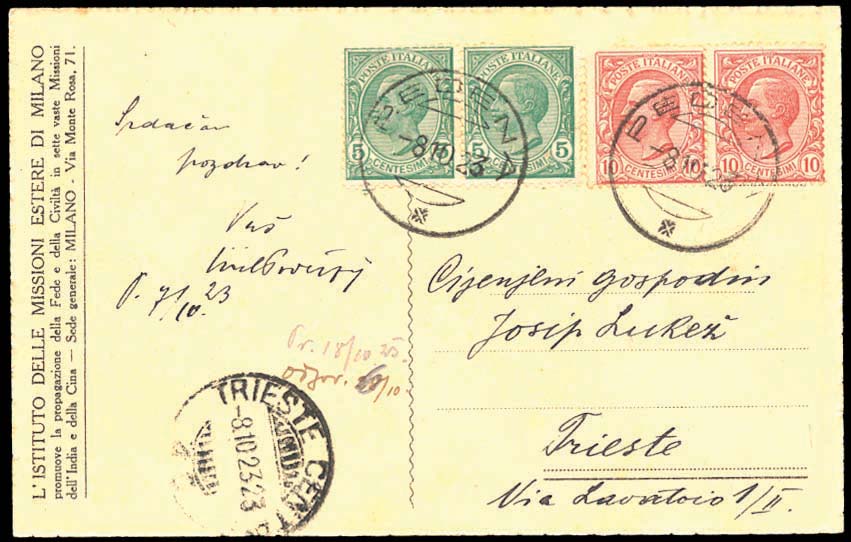 L'ISTITUTO DELLE MISSIONI ESTERE DI MILANO
promuove la propagazione della Fede e della Civiltà in sette vaste Missioni
dell'India e della Cina — Sede generale: MILANO - Via Monte Rosa, 71.
Srdačan
pozdrav!
Vaš
P. 7/10. 23
POSTE ITALIANE
5 CENTESIMI
POSTE ITALIANE
5 CENTESIMI 5
POSTE ITALIANE
10 CENTESIMI
POSTE ITALIANE
10 CENTESIMI 10
PEDENA
-8.10.23
PEDE
-8.10.23
Cijenjeni gospodin
Josip Lukež
Trieste
Via Lavatoio 1/II.
Pr. 18/10 23.
Odgov. /10.
TRIESTE CENTR
-8.10.23.23